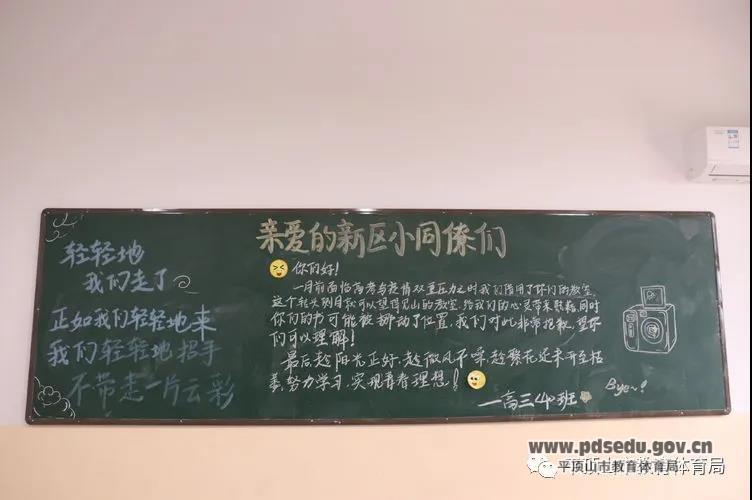 轻轻地
我们走了
正如我们轻轻地来
我们轻轻地招手
不带走一片云彩
亲爱的新区小同僚们
你们好!
一月前面临高考与疫情双重压力之时我们借用了你们的教室,
这个转头别自就可以望得见山的教室,给我们的心灵带来慰藉,同时
你们的书可能被挪动了位置,我们对此非常抱歉,望你
们可以理解!
最后趁阳光正好,趁微风不噪,趁繁花还未开至枯
萎,努力学习,实现青春理想!
—高三(4)班
Bye~!
www.pdsedu.gov.cn
平顶山市教育体育局